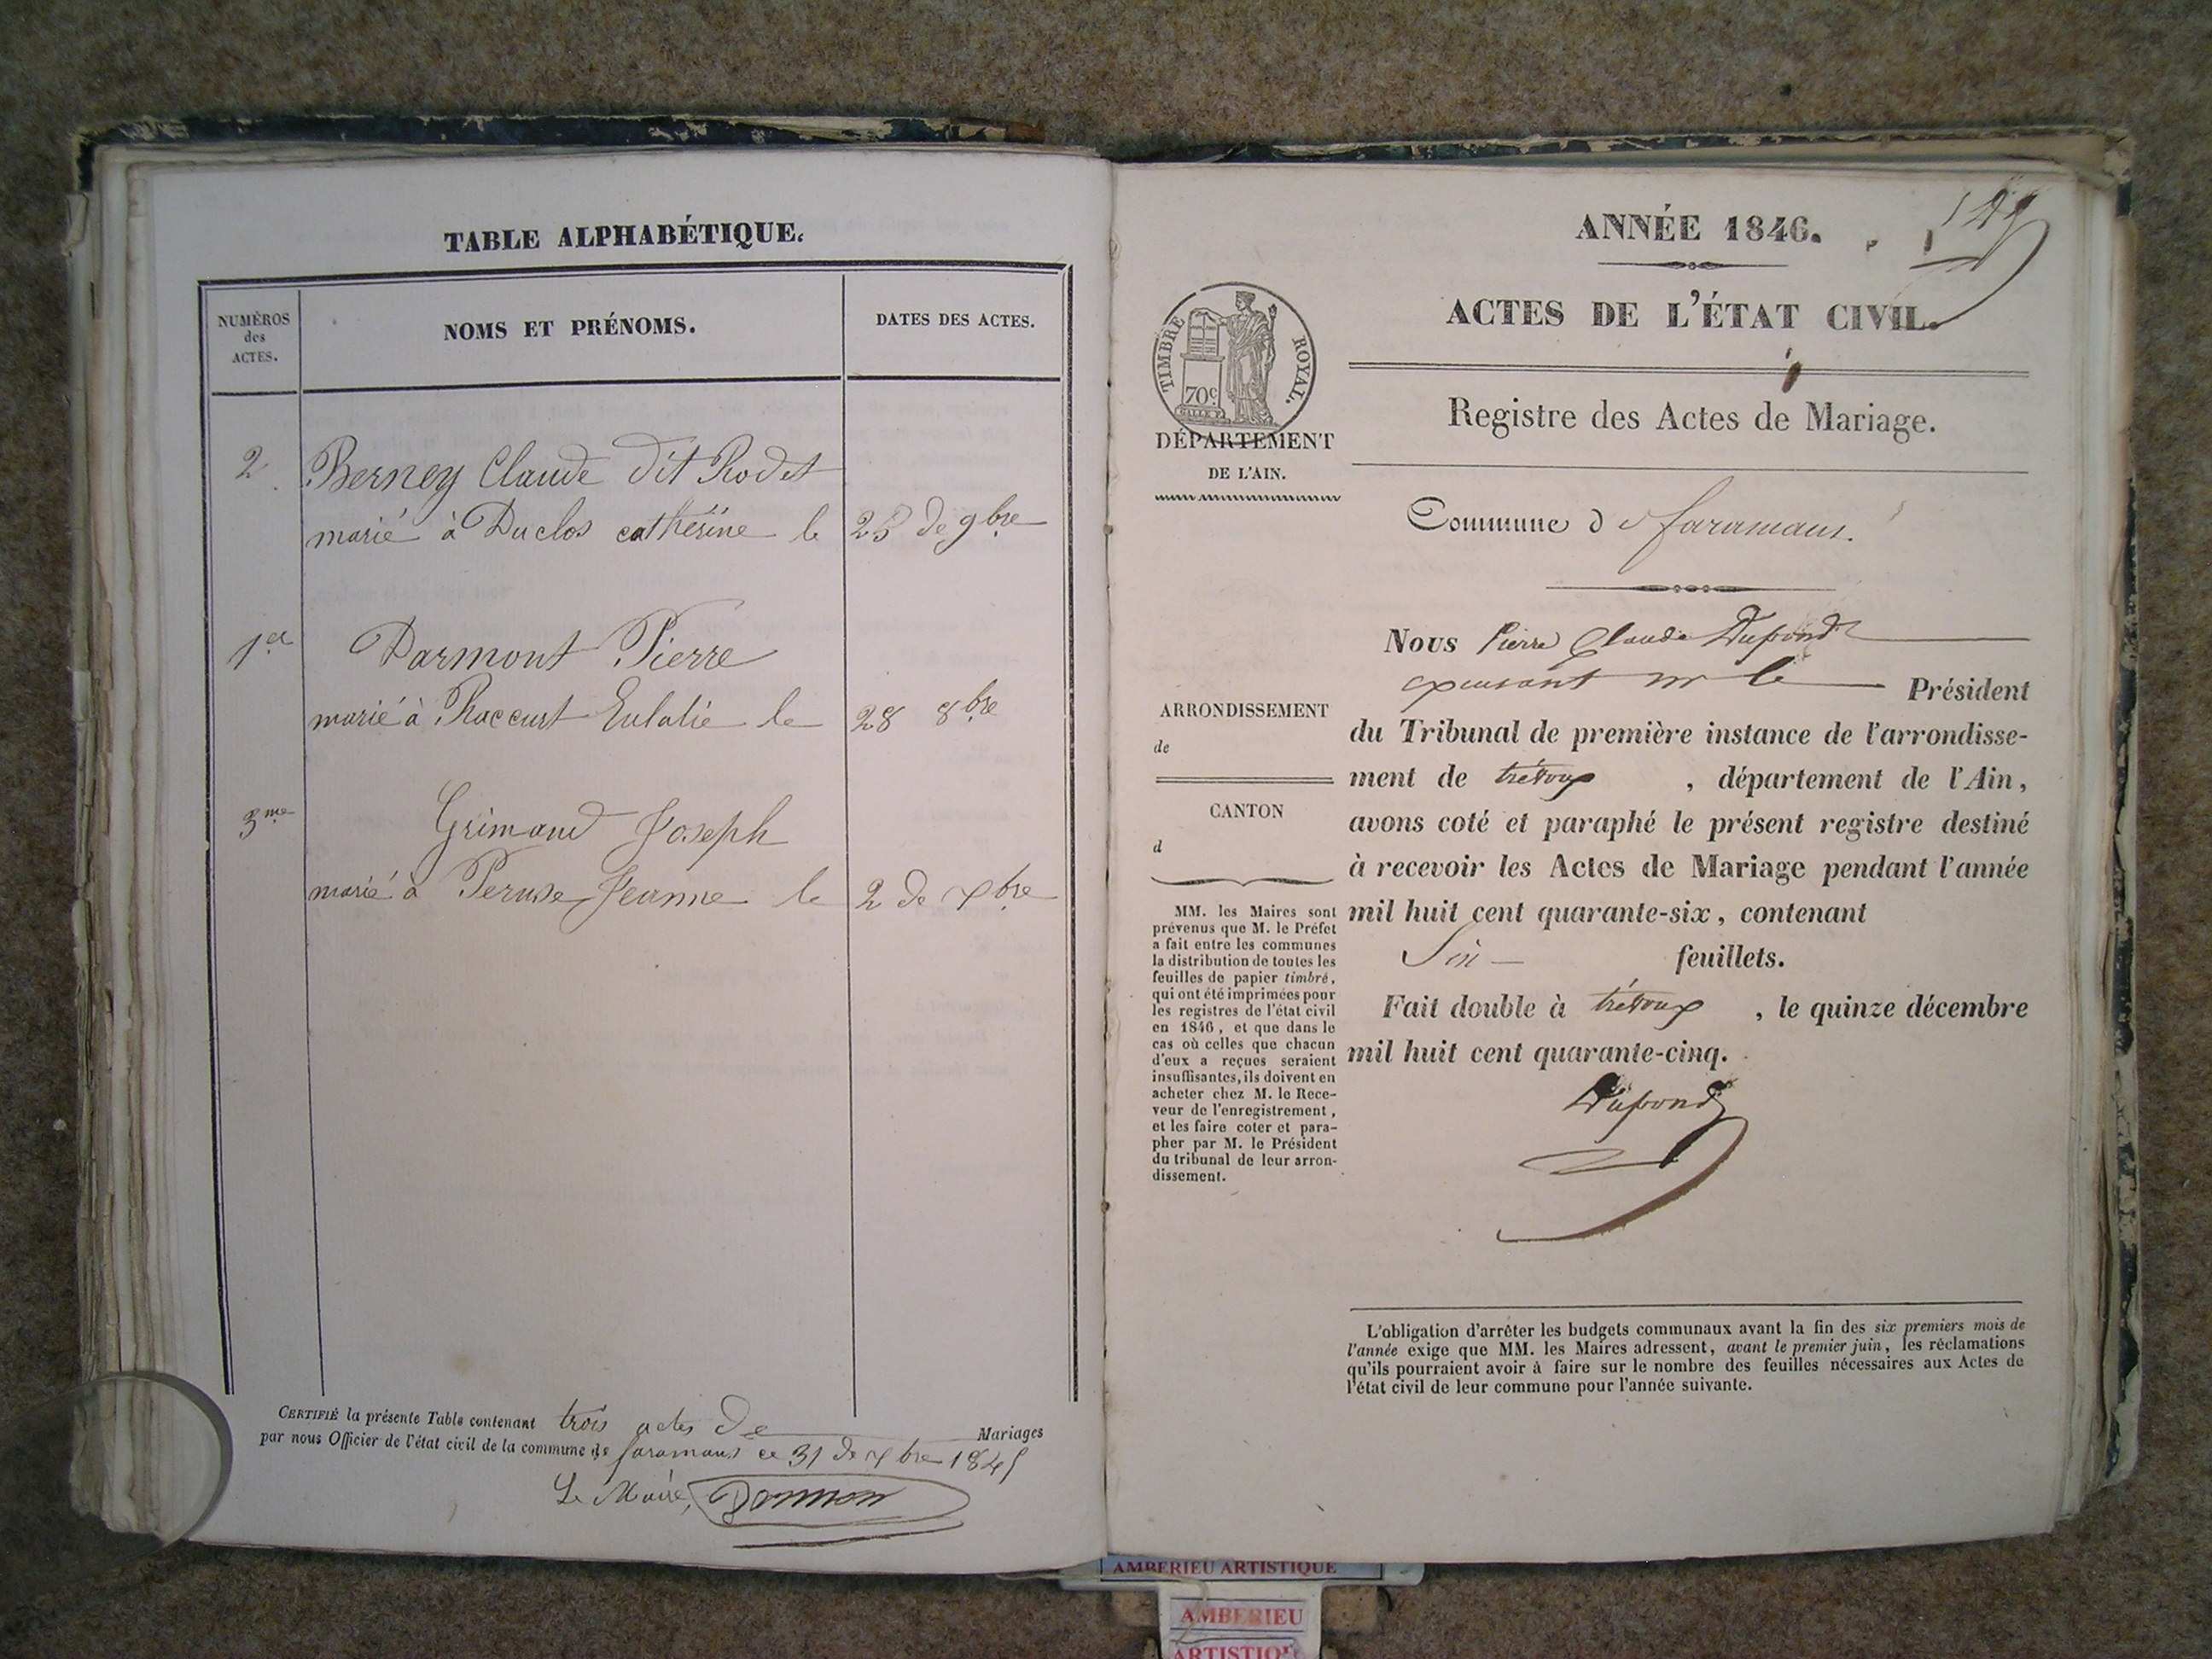 TABLE ALPHABÉTIQUE.
NUMÉROS
des
ACTES.
NOMS ET PRÉNOMS.
DATES DES ACTES.
2 Berney Claude dit Rodet
marié à Duclos catherine le 25 de 9bre
1er Darmont Pierre
marié à Raccurt Eulalie le 28 8bre
3me Grimaud Joseph
marié à Peruse Jeanne le 2 de xbre
CERTIFIÉ la présente Table contenant trois actes de Mariages
par nous Officier de l'état civil de la commune de faramans ce 31 de xbre 1845
Le Maire,
ANNÉE 1846.
ACTES DE L'ÉTAT CIVIL.
TIMBRE ROYAL.
70c
DÉPARTEMENT
DE L'AIN.
Registre des Actes de Mariage.
Commune de faramans.
Nous Pierre Claude Dupond
exerçant pr le Président
du Tribunal de première instance de l'arrondisse-
ment de trévoux , département de l'Ain,
avons coté et paraphé le présent registre destiné
à recevoir les Actes de Mariage pendant l'année
mil huit cent quarante-six, contenant
Six feuillets.
Fait double à trévoux , le quinze décembre
mil huit cent quarante-cinq.
Dupond
ARRONDISSEMENT
de
CANTON
d
MM. les Maires sont
prévenus que M. le Préfet
a fait entre les communes
la distribution de toutes les
feuilles de papier timbré,
qui ont été imprimées pour
les registres de l'état civil
en 1846, et que dans le
cas où celles que chacun
d'eux a reçues seraient
insuffisantes, ils doivent en
acheter chez M. le Rece-
veur de l'enregistrement,
et les faire coter et para-
pher par M. le Président
du tribunal de leur arron-
dissement.
L'obligation d'arrêter les budgets communaux avant la fin des six premiers mois de
l'année exige que MM. les Maires adressent, avant le premier juin, les réclamations
qu'ils pourraient avoir à faire sur le nombre des feuilles nécessaires aux Actes de
l'état civil de leur commune pour l'année suivante.
AMBERIEU ARTISTIQUE
AMBERIEU
ARTISTIQUE